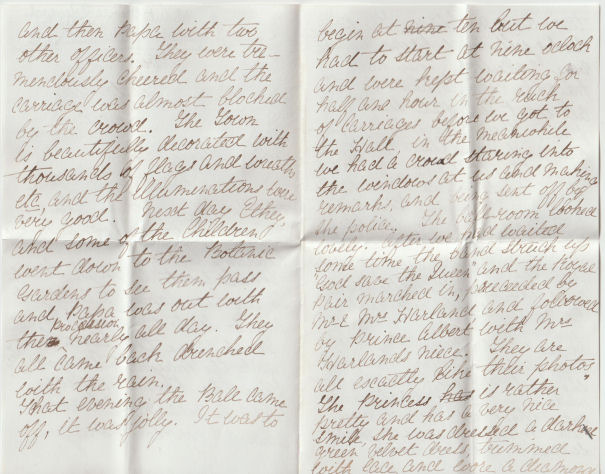 and then Papa with two
other officers. They were tre-
mendously cheered and the
carriage was almost blocked
by the crowd. The Town
is beautifully decorated with
thousands of flags and wreaths
etc and the Illuminations were
very good. Next day Ethey,
and some of the Children
went down to the Botanic
Gardens to see them pass
and Papa was out with
the Procession nearly all day. They
all came back drenched
with the rain.
That evening the Ball came
off, it was jolly. It was to
begin at nine ten but we
had to start at nine oclock
and were kept waiting for
half an hour in the
of Carriages before we got to
the Hall, in the meanwhile
we had a crowd staring into
the windows at us and making
remarks, and being sent off by
the police. The ball-room looked
lovely. After we had waited
some time the band struck up
"God save the Queen" and the Royal
Pair marched in, preceeded by
Mr & Mrs Harland and followed
by Prince Albert with Mrs
Harlands niece. They are
all escactly like their photos
The Princess has is rather
pretty and has a very nice
smile, she was dressed a dark
green velvet dress trimmed
with lace and wore a